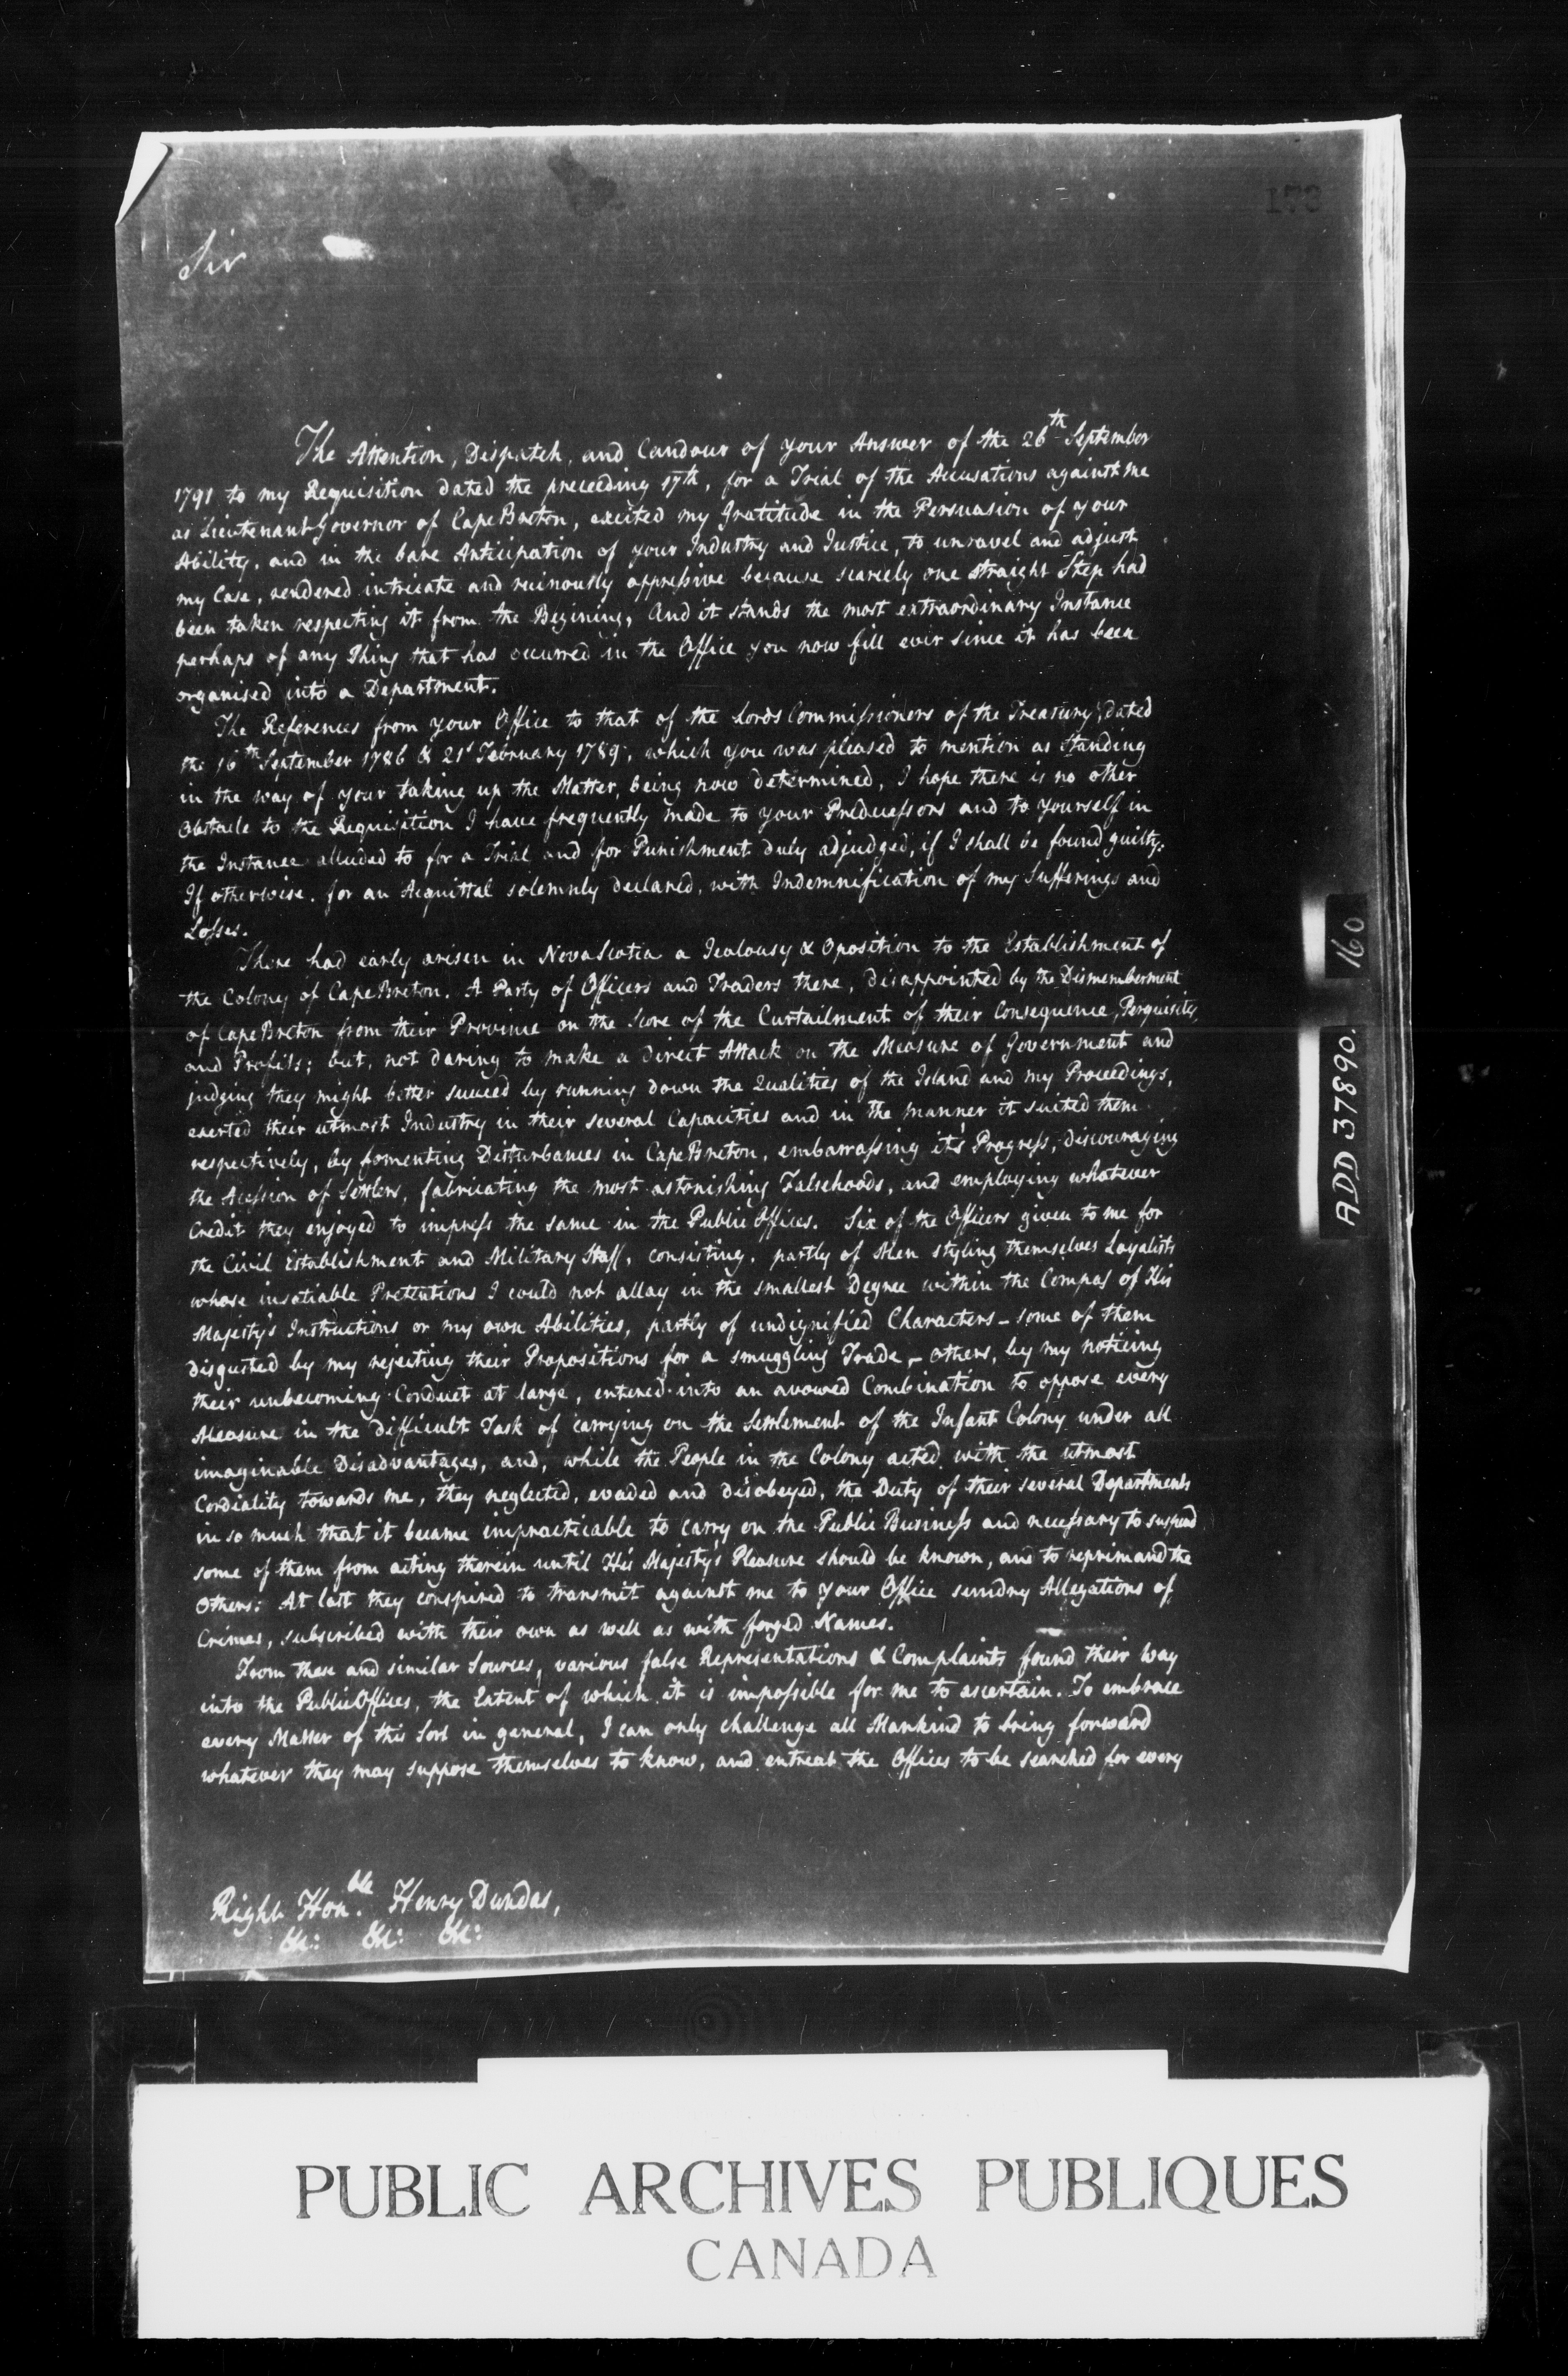 173
Sir
The Attention, Dispatch, and Candour of your Answer of the 26th September
1791 to my Requisition dated the preceeding 17th, for a Trial of the Accusations against me
as Lieutenant Governor of Cape Breton, excited my Gratitude in the Persuasion of your
Ability, and in the bare Anticipation of your Industry and Justice, to unravel and adjust
my Case, rendered intricate and ruinously oppressive because scarcely one straight Step had
been taken respecting it from the Begining, And it stands the most extraordinary Instance
perhaps of any Thing that has occurred in the Office you now fill ever since it has been
organised into a Department.
The References from your Office to that of the Lords Commissioners of the Treasury, dated
the 16th September 1786 & 21st February 1789, which you was pleased to mention as Standing
in the way of your taking up the Matter, being now determined, I hope there is no other
Obstacle to the Requisition I have frequently made to your Predecessors and to yourself in
the Instance alluded to for a Trial and for Punishment duly adjudged, if I shall be found guilty:
If otherwise, for an Acquittal solemnly declared, with Indemnification of my Sufferings and
Losses.
There had early arisen in Nova Scotia a Jealousy & Oposition to the Establishment of
the Colony of Cape Breton. A Party of Officers and Traders there, disappointed by the Dismemberment
of Cape Breton from their Province on the Score of the Curtailment of their Consequence, Perquisites,
and Profits; but, not daring to make a direct Attack on the Measure of Government and
judging they might better succeed by running down the Qualities of the Island and my Proceedings,
exerted their utmost Industry in their several Capacities and in the manner it suited them
respectively, by fomenting Disturbances in Cape Breton, embarrassing it's Progress, discouraging
the Accession of Settlers, fabricating the most astonishing Falsehoods, and employing whatever
Credit they enjoyed to impress the same in the Public Offices. Six of the Officers given to me for
the Civil Establishment and Military Staff, consisting, partly of Men styling themselves Loyalists
whose insatiable Pretentions I could not allay in the smallest Degree within the Compas of His
Majesty's Instructions or my own Abilities, partly of undignified Characters - some of them
disgusted by my rejecting their Propositions for a smuggling Trade, - others, by my noticing
their unbecoming Conduct at large, entered into an avowed Combination to oppose every
Measure in the difficult Task of carrying on the Settlement of the Infant Colony under all
imaginable Disadvantages, and, while the People in the Colony acted with the utmost
Cordiality towards me, they neglected, evaded and disobeyed, the Duty of their several Departments
in so much that it became impracticable to carry on the Public Business and necessary to suspend
some of them from acting therein until His Majesty's Pleasure should be known, and to reprimand the
others: At last they conspired to transmit against me to your Office sundry Allegations of
Crimes, subscribed with their own as well as with forged Names.
From these and similar Sources, various false Representations & Complaints found their way
into the Public Offices, the Extent of which it is impossible for me to ascertain. To embrace
every Matter of this Sort in general, I can only challenge all Mankind to bring forward
whatever they may suppose themselves to know, and entreat the Offices to be searched for every
Right Honble. Henry Dundas,
&c: &c: &c:
160
ADD 37890.
PUBLIC ARCHIVES PUBLIQUES
CANADA